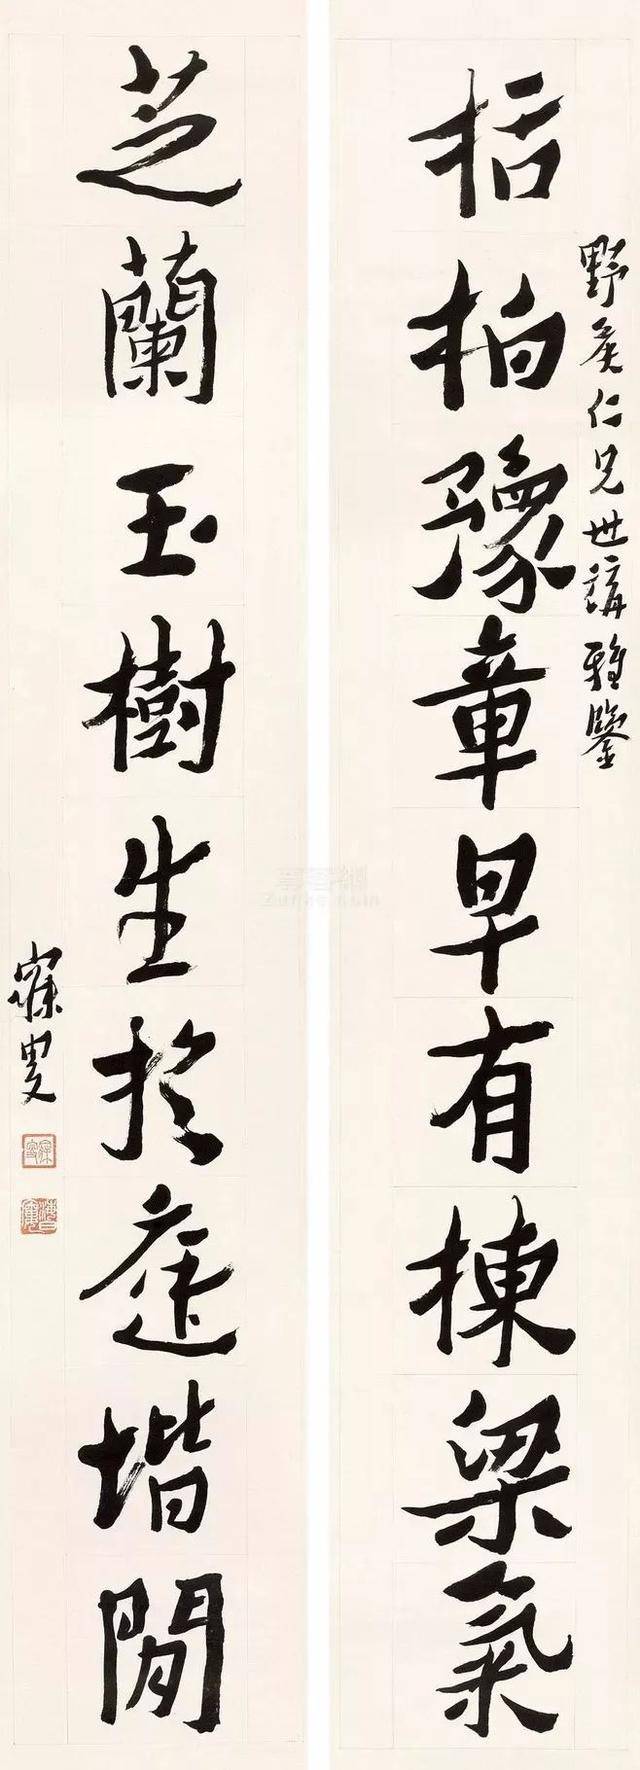 野侯仁兄世講雅鑒
栝柏豫章早有棟梁氣
芝蘭玉樹生於庭堦閒
寐叟